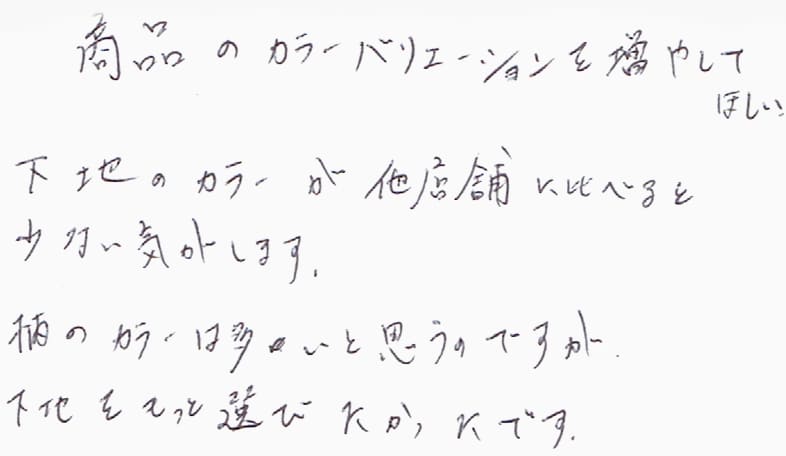 商品のカラーバリエーションを増やして
ほしい
下地のカラーが他店舗に比べると
少ない気がします。
柄のカラーは多いと思うのですが、
下地をもっと選びたかったです。